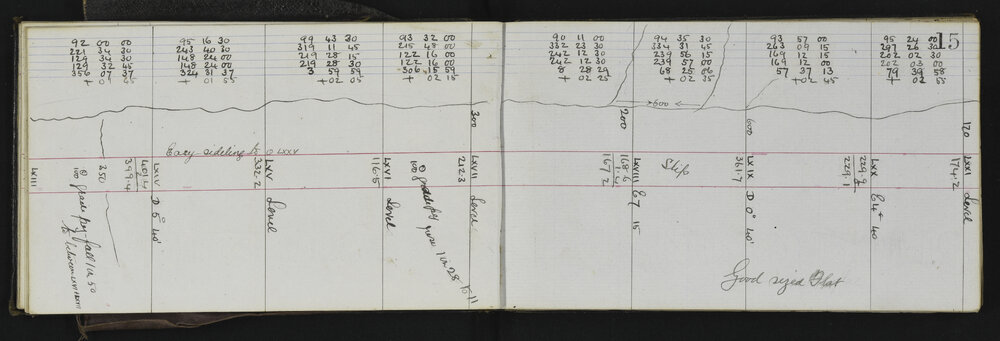 15
92 00 00
221 34 30
129 34 30
129 32 45
356 07 37
+ 00 45
95 16 30
243 40 30
148 24 00
148 24 00
324 31 37
+ 01 55
99 43 30
319 11 45
219 28 15
219 28 30
3 59 59
+ 02 05
93 32 00
215 48 00
122 16 00
122 16 00
306 15 59
+ 02 15
90 11 00
332 23 30
242 12 30
242 12 30
8 28 29
+ 02 25
94 35 30
334 31 45
239 56 15
239 57 00
68 25 06
+ 02 35
93 57 00
263 09 15
169 12 15
169 12 00
57 37 13
+ 02 45
95 24 00
297 26 30
202 02 30
202 03 00
79 39 58
+ 02 55
300
200
600
600
120
Easy sideling to LXXV
LXIII
350
399.4
401.4
LXIV D 5° 40'
332.2
LXV Level
116.5
LXVI Level
212.3
LXVII Level
167.2
168.6
LXVIII E 7 15
Slip
361.7
LXIX D 0° 40'
229.1
229.9
LXX E 4° 40
174.2
LXXI Level
grade peg fall 1 in 50
grade peg rise 1 in 28 to 71
Good sized Flat